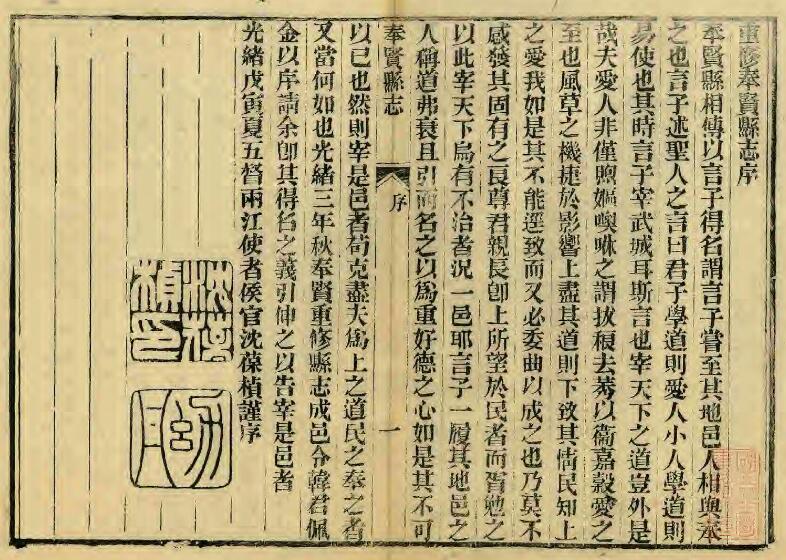 重修奉賢縣志序
奉賢縣相傳以言子得名謂言子嘗至其地邑人相與奉
之也言子述聖人之言曰君子學道則愛人小人學道則
易使也其時言子宰武城耳斯言也宰天下之道豈外是
哉夫愛人非僅煦嫗噢咻之謂拔稂去莠以衞嘉穀愛之
至也風草之機捷於影響上盡其道則下致其情民知上
之愛我如是其不能逕致而又必委曲以成之也乃莫不
感發其固有之良尊君親長卽上所望於民者而胥勉之
以此宰天下烏有不治者況一邑耶言子一履其地邑之
人稱道弗衰且引而名之以爲重好德之心如是其不可
奉賢縣志
序
一
以已也然則宰是邑者苟克盡夫爲上之道民之奉之者
又當何如也光緒三年秋奉賢重修縣志成邑令韓君佩
金以序請余卽其得名之義引伸之以告宰是邑者
光緒戊寅夏五督兩江使者侯官沈葆楨謹序
沈葆楨印